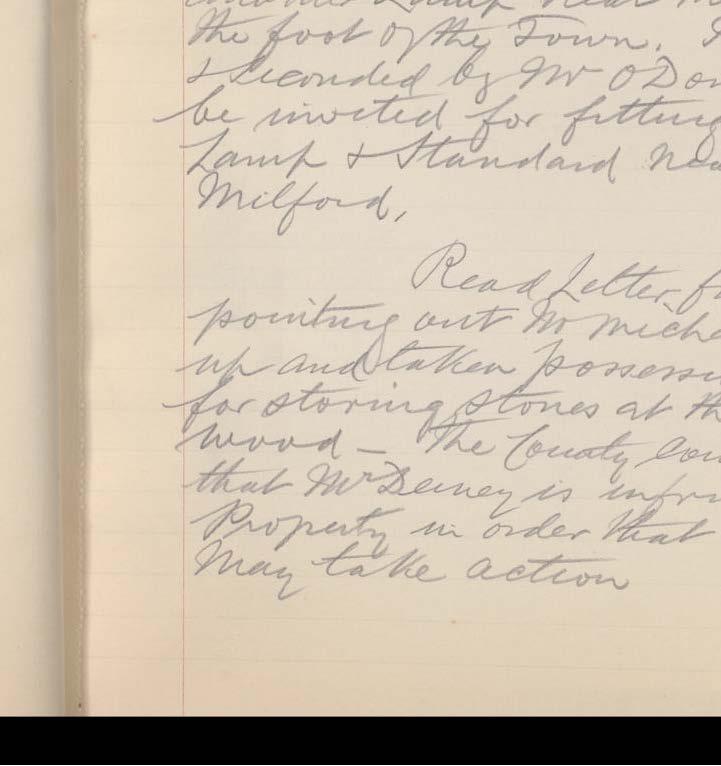 another Lamp near
the foot of the Town.
& seconded by Mr O'Don
be invited for fitting
Lamp & Standard nea
Milford,
Read Letter fr
pointing out Mr Miche
up and taken possessi
for storing stones at th
Wood – The County Cou
that Mr Deeney is infri
Property in order that
May take action